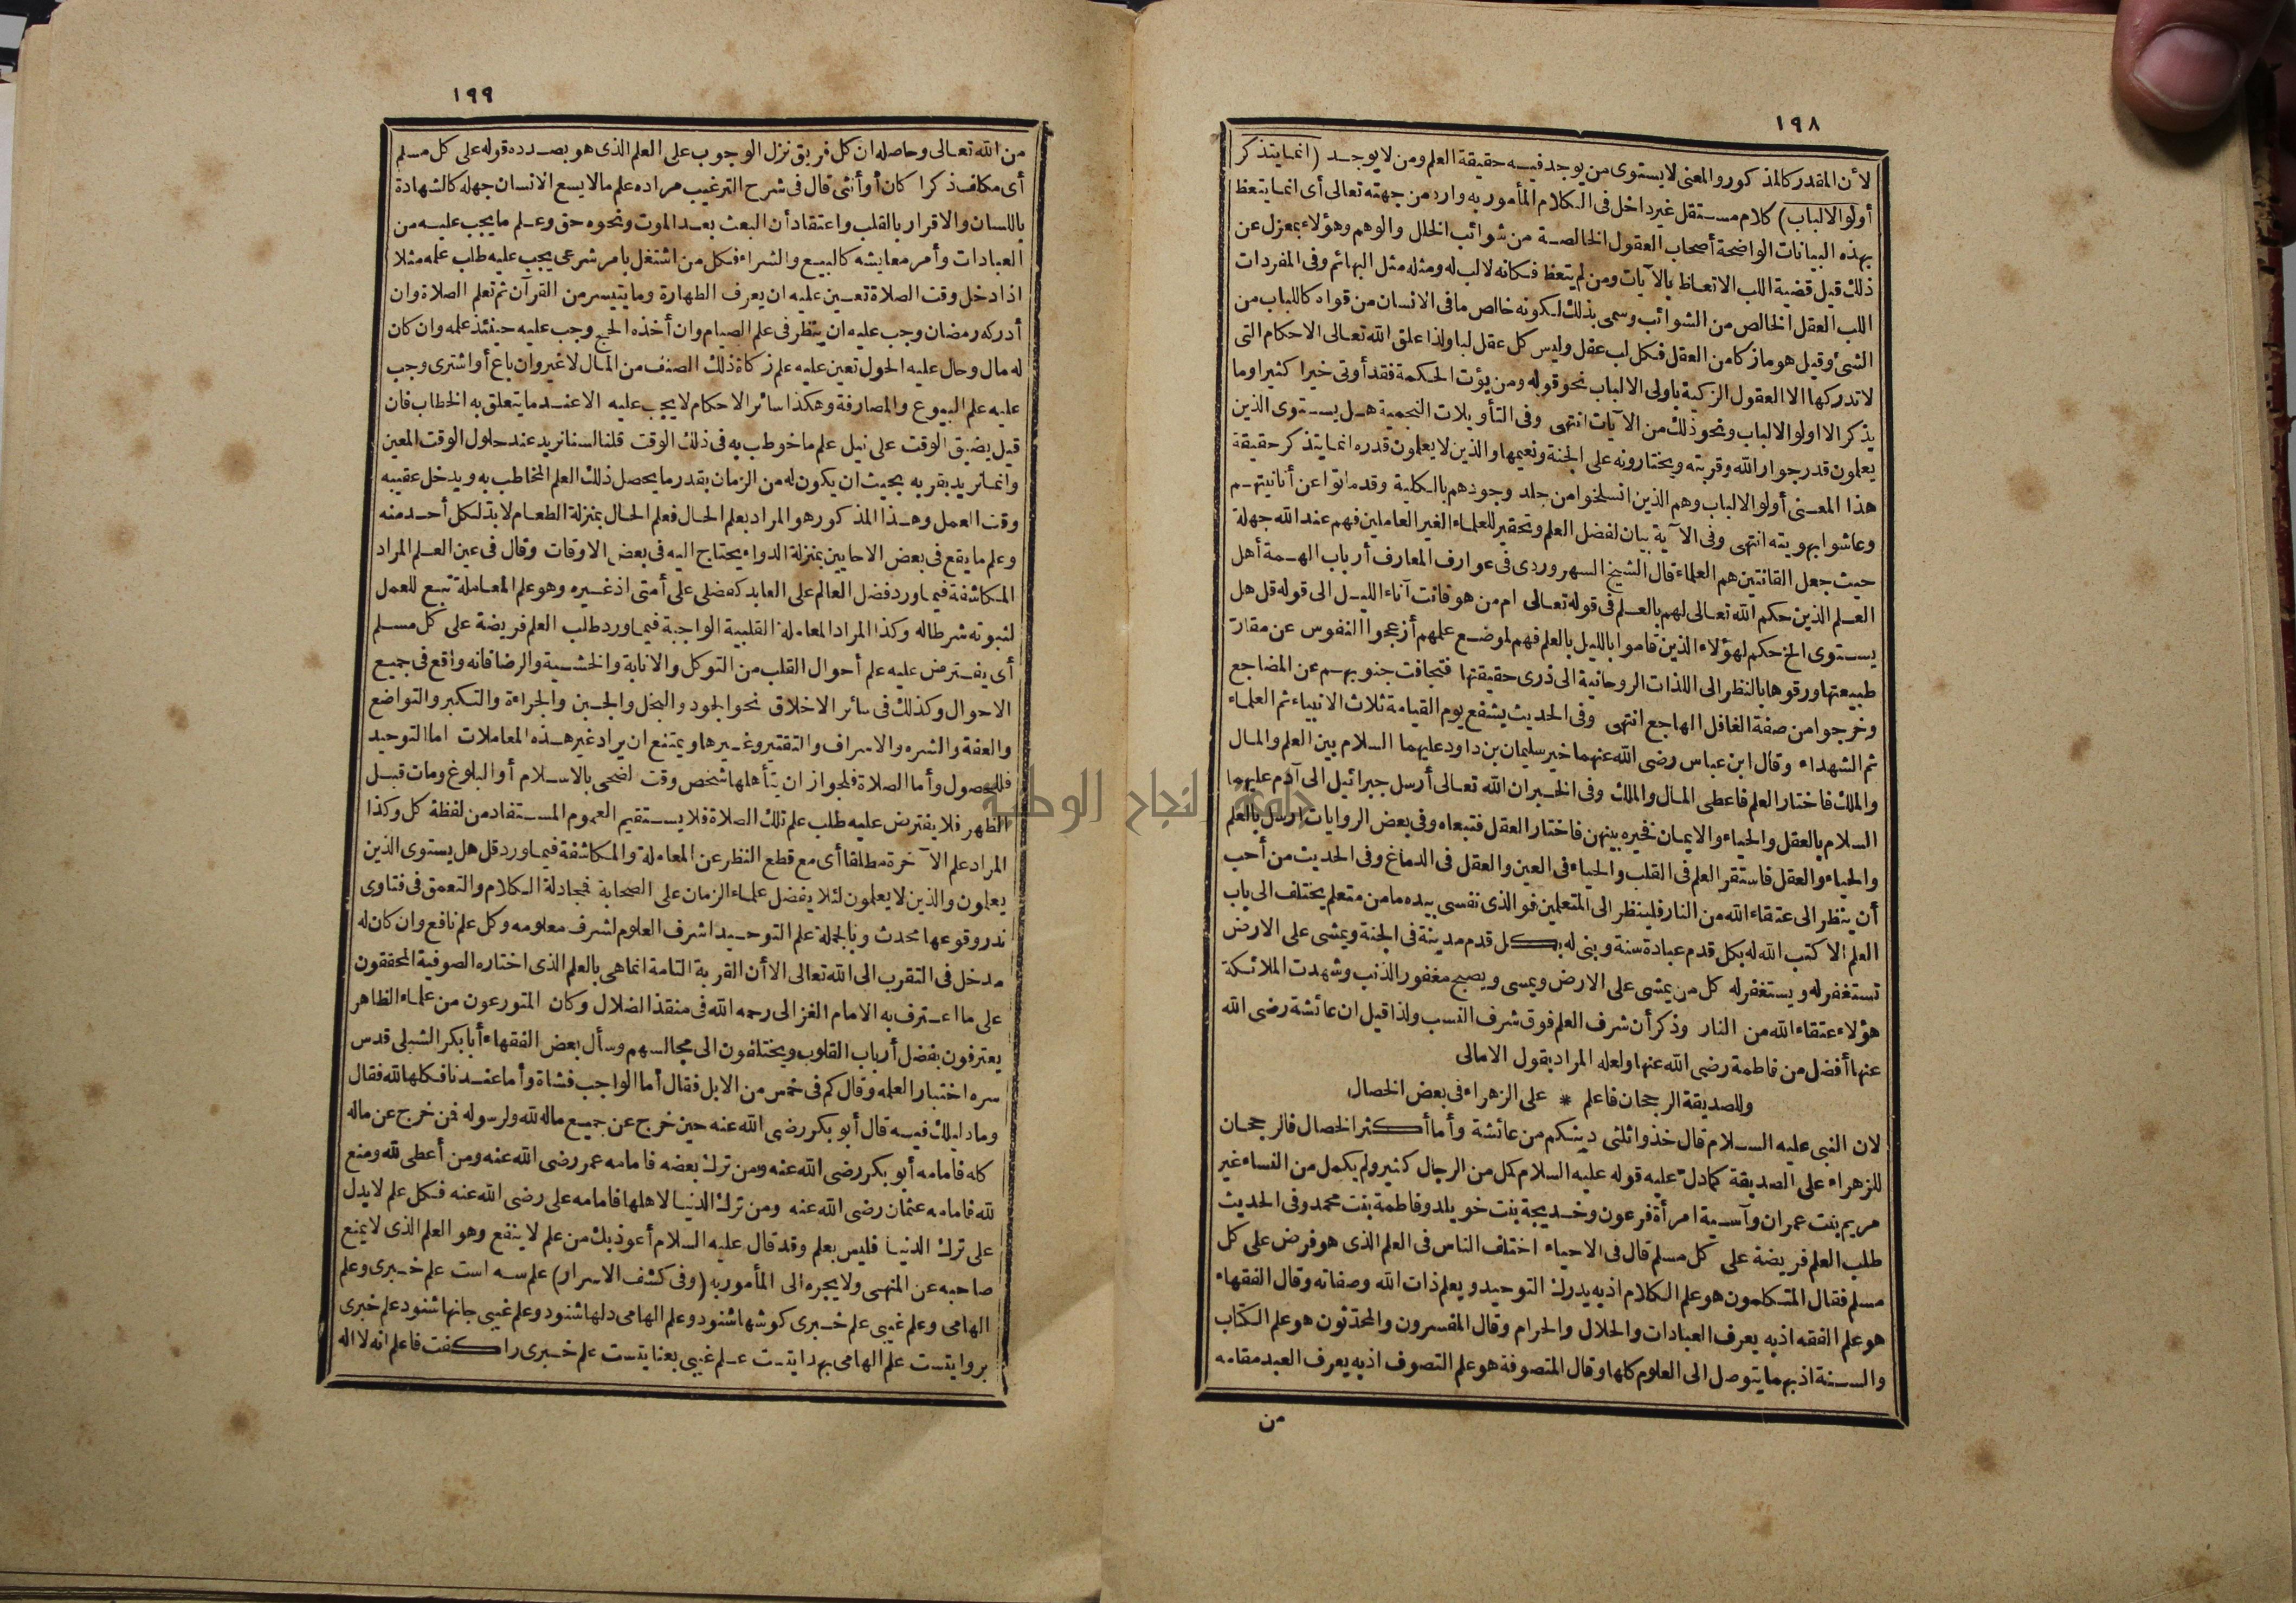 ١٩٨
لأن المقدر كالمذكور والمعنى لا يستوى من يوجد فيه حقيقة العلم ومن لا يوجد (انما يتذكر
أولو الالباب) كلام مستقل غير داخل فى الكلام المأمور به وارد من جهته تعالى أى انما يتعظ
بهذه البيانات الواضحة أصحاب العقول الخالصة من شوائب الخلل والوهم وهؤلاء بمعزل عن
ذلك قيل قضية اللب الاتعاظ بالآيات ومن لم يتعظ فكانه لا لب له ومثله مثل البهائم وفى المفردات
اللب العقل الخالص من الشوائب وسمى بذلك لكونه خالص ما فى الانسان من قواه كاللباب من
الشئ وقيل هو ما زكا من العقل فكل لب عقل وليس كل عقل لبا ولذا علق الله تعالى الاحكام التى
لا تدركها الا العقول الزكية باولى الالباب نحو قوله ومن يؤت الحكمة فقد أوتى خيرا كثيرا وما
يذكر الا اولوا الالباب ونحو ذلك من الآيات انتهى وفى التأويلات النجمية هل يستوى الذين
يعلمون قدر جوار الله وقربته ويختارونه على الجنة ونعيمها والذين لا يعلمون قدره انما يتذكر حقيقة
هذا المعنى أولو الالباب وهم الذين انسلخوا من جلد وجودهم بالكلية وقد ماتوا عن أنانيتهم
وعاشوا بهويته انتهى وفى الآية بيان لفضل العلم وتحقير للعلماء الغير العاملين فهم عند الله جهلة
حيث جعل القانتين هم العلماء قال الشيخ السهروردى فى عوارف المعارف أرباب الهمة أهل
العلم الذين حكم الله تعالى لهم بالعلم فى قوله تعالى ام من هو قانت آناء الليل الى قوله قل هل
يستوى الخ حكم لهؤلاء الذين قاموا بالليل بالعلم فهم لموضع علمهم أزعجوا النفوس عن مقار
طبيعتها ورقوها بالنظر الى اللذات الروحانية الى ذرى حقيقتها فتجافت جنوبهم عن المضاجع
وخرجوا من صفة الغافل الهاجع انتهى وفى الحديث يشفع يوم القيامة ثلاث الانبياء ثم العلماء
ثم الشهداء وقال ابن عباس رضى الله عنهما خير سليمان بن داود عليهما السلام بين العلم والمال
والملك فاختار العلم فاعطى المال والملك وفى الخبر ان الله تعالى أرسل جبرائيل الى آدم عليهما
السلام بالعقل والحياء والايمان فخيره بينهن فاختار العقل فتبعاه وفى بعض الروايات أرسل بالعلم
والحياء والعقل فاستقر العلم فى القلب والحياء فى العين والعقل فى الدماغ وفى الحديث من أحب
أن ينظر الى عتقاء الله من النار فلينظر الى المتعلمين فو الذى نفسى بيده ما من متعلم يختلف الى باب
العلم الا كتب الله له بكل قدم عبادة سنة وبنى له بكل قدم مدينة فى الجنة ويمشى على الارض
تستغفر له ويستغفر له كل من يمشى على الارض ويمسى ويصبح مغفور الذنب وشهدت الملائكة
هؤلاء عتقاء الله من النار وذكر أن شرف العلم فوق شرف النسب ولذا قيل ان عائشة رضى الله
عنها أفضل من فاطمة رضى الله عنها ولعله المراد بقول الامالى
وللصديقة الرجحان فاعلم * على الزهراء فى بعض الخصال
لان النبى عليه السلام قال خذوا ثلثى دينكم من عائشة وأما أكثر الخصال فالرجحان
للزهراء على الصديقة كما دل عليه قوله عليه السلام كمل من الرجال كثير ولم يكمل من النساء غير
مريم بنت عمران وآسية امرأة فرعون وخديجة بنت خويلد وفاطمة بنت محمد وفى الحديث
طلب العلم فريضة على كل مسلم قال فى الاحياء اختلف الناس فى العلم الذى هو فرض على كل
مسلم فقال المتكلمون هو علم الكلام اذ به يدرك التوحيد ويعلم ذات الله وصفاته وقال الفقهاء
هو علم الفقه اذ به يعرف العبادات والحلال والحرام وقال المفسرون والمحدثون هو علم الكتاب
والسنة اذ بهما يتوصل الى العلوم كلها وقال المتصوفة هو علم التصوف اذ به يعرف العبد مقامه
من
١٩٩
من الله تعالى وحاصله ان كل فريق نزل الوجوب على العلم الذى هو بصدده قوله على كل مسلم
أى مكلف ذكرا كان أو أنثى قال فى شرح الترغيب مراده علم ما لا يسع الانسان جهله كالشهادة
باللسان والاقرار بالقلب واعتقاد أن البعث بعد الموت ونحوه حق وعلم ما يجب عليه من
العبادات وأمر معايشه كالبيع والشراء فكل من اشتغل بامر شرعى يجب عليه طلب علمه مثلا
اذا دخل وقت الصلاة تعين عليه ان يعرف الطهارة وما يتيسر من القرآن ثم تعلم الصلاة وان
أدركه رمضان وجب عليه ان ينظر فى علم الصيام وان أخذه الحج وجب عليه حينئذ علمه وان كان
له مال وحال عليه الحول تعين عليه علم زكاة ذلك الصنف من المال لا غير وان باع أو اشترى وجب
عليه علم البيوع والمصارفة وهكذا سائر الاحكام لا يجب عليه الا عند ما يتعلق به الخطاب فان
قيل يضيق الوقت على نيل علم ما خوطب به فى ذلك الوقت قلنا لسنا نريد عند حلول الوقت المعين
وانما نريد بقربه بحيث ان يكون له من الزمان بقدر ما يحصل ذلك العلم المخاطب به ويدخل عقيبه
وقت العمل وهذا المذكور هو المراد بعلم الحال فعلم الحال بمنزلة الطعام لا بد لكل أحد منه
وعلم ما يقع فى بعض الاحايين بمنزلة الدواء يحتاج اليه فى بعض الاوقات وقال فى عين العلم المراد
المكاشفة فيما ورد فضل العالم على العابد كفضلى على أمتى اذ غيره وهو علم المعاملة تبع للعمل
لثبوته شرطا له وكذا المراد المعاملة القلبية الواجبة فيما ورد طلب العلم فريضة على كل مسلم
أى يفترض عليه علم أحوال القلب من التوكل والانابة والخشية والرضا فانه واقع فى جميع
الاحوال وكذلك فى سائر الاخلاق نحو الجود والبخل والجبن والجراءة والتكبر والتواضع
والعفة والشره والاسراف والتقتير وغيرها ويمتنع ان يراد غير هذه المعاملات اما التوحيد
فللحصول وأما الصلاة فلجواز ان يتأهلها شخص وقت الضحى بالاسلام أو البلوغ ومات قبل
الظهر فلا يفترض عليه طلب علم تلك الصلاة فلا يستقيم العموم المستفاد من لفظة كل وكذا
المراد علم الآخرة مطلقا أى مع قطع النظر عن المعاملة والمكاشفة فيما ورد قل هل يستوى الذين
يعلمون والذين لا يعلمون لئلا يفضل علماء الزمان على الصحابة فمجادلة الكلام والتعمق فى فتاوى
ندر وقوعها محدث وبالجملة علم التوحيد اشرف العلوم لشرف معلومه وكل علم نافع وان كان له
مدخل فى التقرب الى الله تعالى الا أن القربة التامة انما هى بالعلم الذى اختاره الصوفية المحققون
على ما اعترف به الامام الغزالى رحمه الله فى منقذ الضلال وكان المتورعون من علماء الظاهر
يعترفون بفضل أرباب القلوب ويختلفون الى مجالسهم وسأل بعض الفقهاء أبا بكر الشبلى قدس
سره اختبارا لعلمه وقال كم فى خمس من الابل فقال أما الواجب فشاة وأما عندنا فكلها لله فقال
وما دليلك فيه قال أبو بكر رضى الله عنه حين خرج عن جميع ماله لله ولرسوله فمن خرج عن ماله
كله فامامه أبو بكر رضى الله عنه ومن ترك بعضه فامامه عمر رضى الله عنه ومن أعطى لله ومنع
لله فامامه عثمان رضى الله عنه ومن ترك الدنيا لاهلها فامامه على رضى الله عنه فكل علم لا يدل
على ترك الدنيا فليس بعلم وقد قال عليه السلام أعوذ بك من علم لا ينفع وهو العلم الذى لا يمنع
صاحبه عن المنهى ولا يجره الى المأمور به (وفى كشف الاسرار) علم سه است علم خبرى وعلم
الهامى وعلم غيبى علم خبرى كوشها شنود وعلم الهامى دلها شنود وعلم غيبى جانها شنود علم خبرى
بروايتست علم الهامى بهدايتست علم غيبى بعنايتست علم خبرى را كفت فاعلم انه لا اله
جامعة النجاح الوطنية